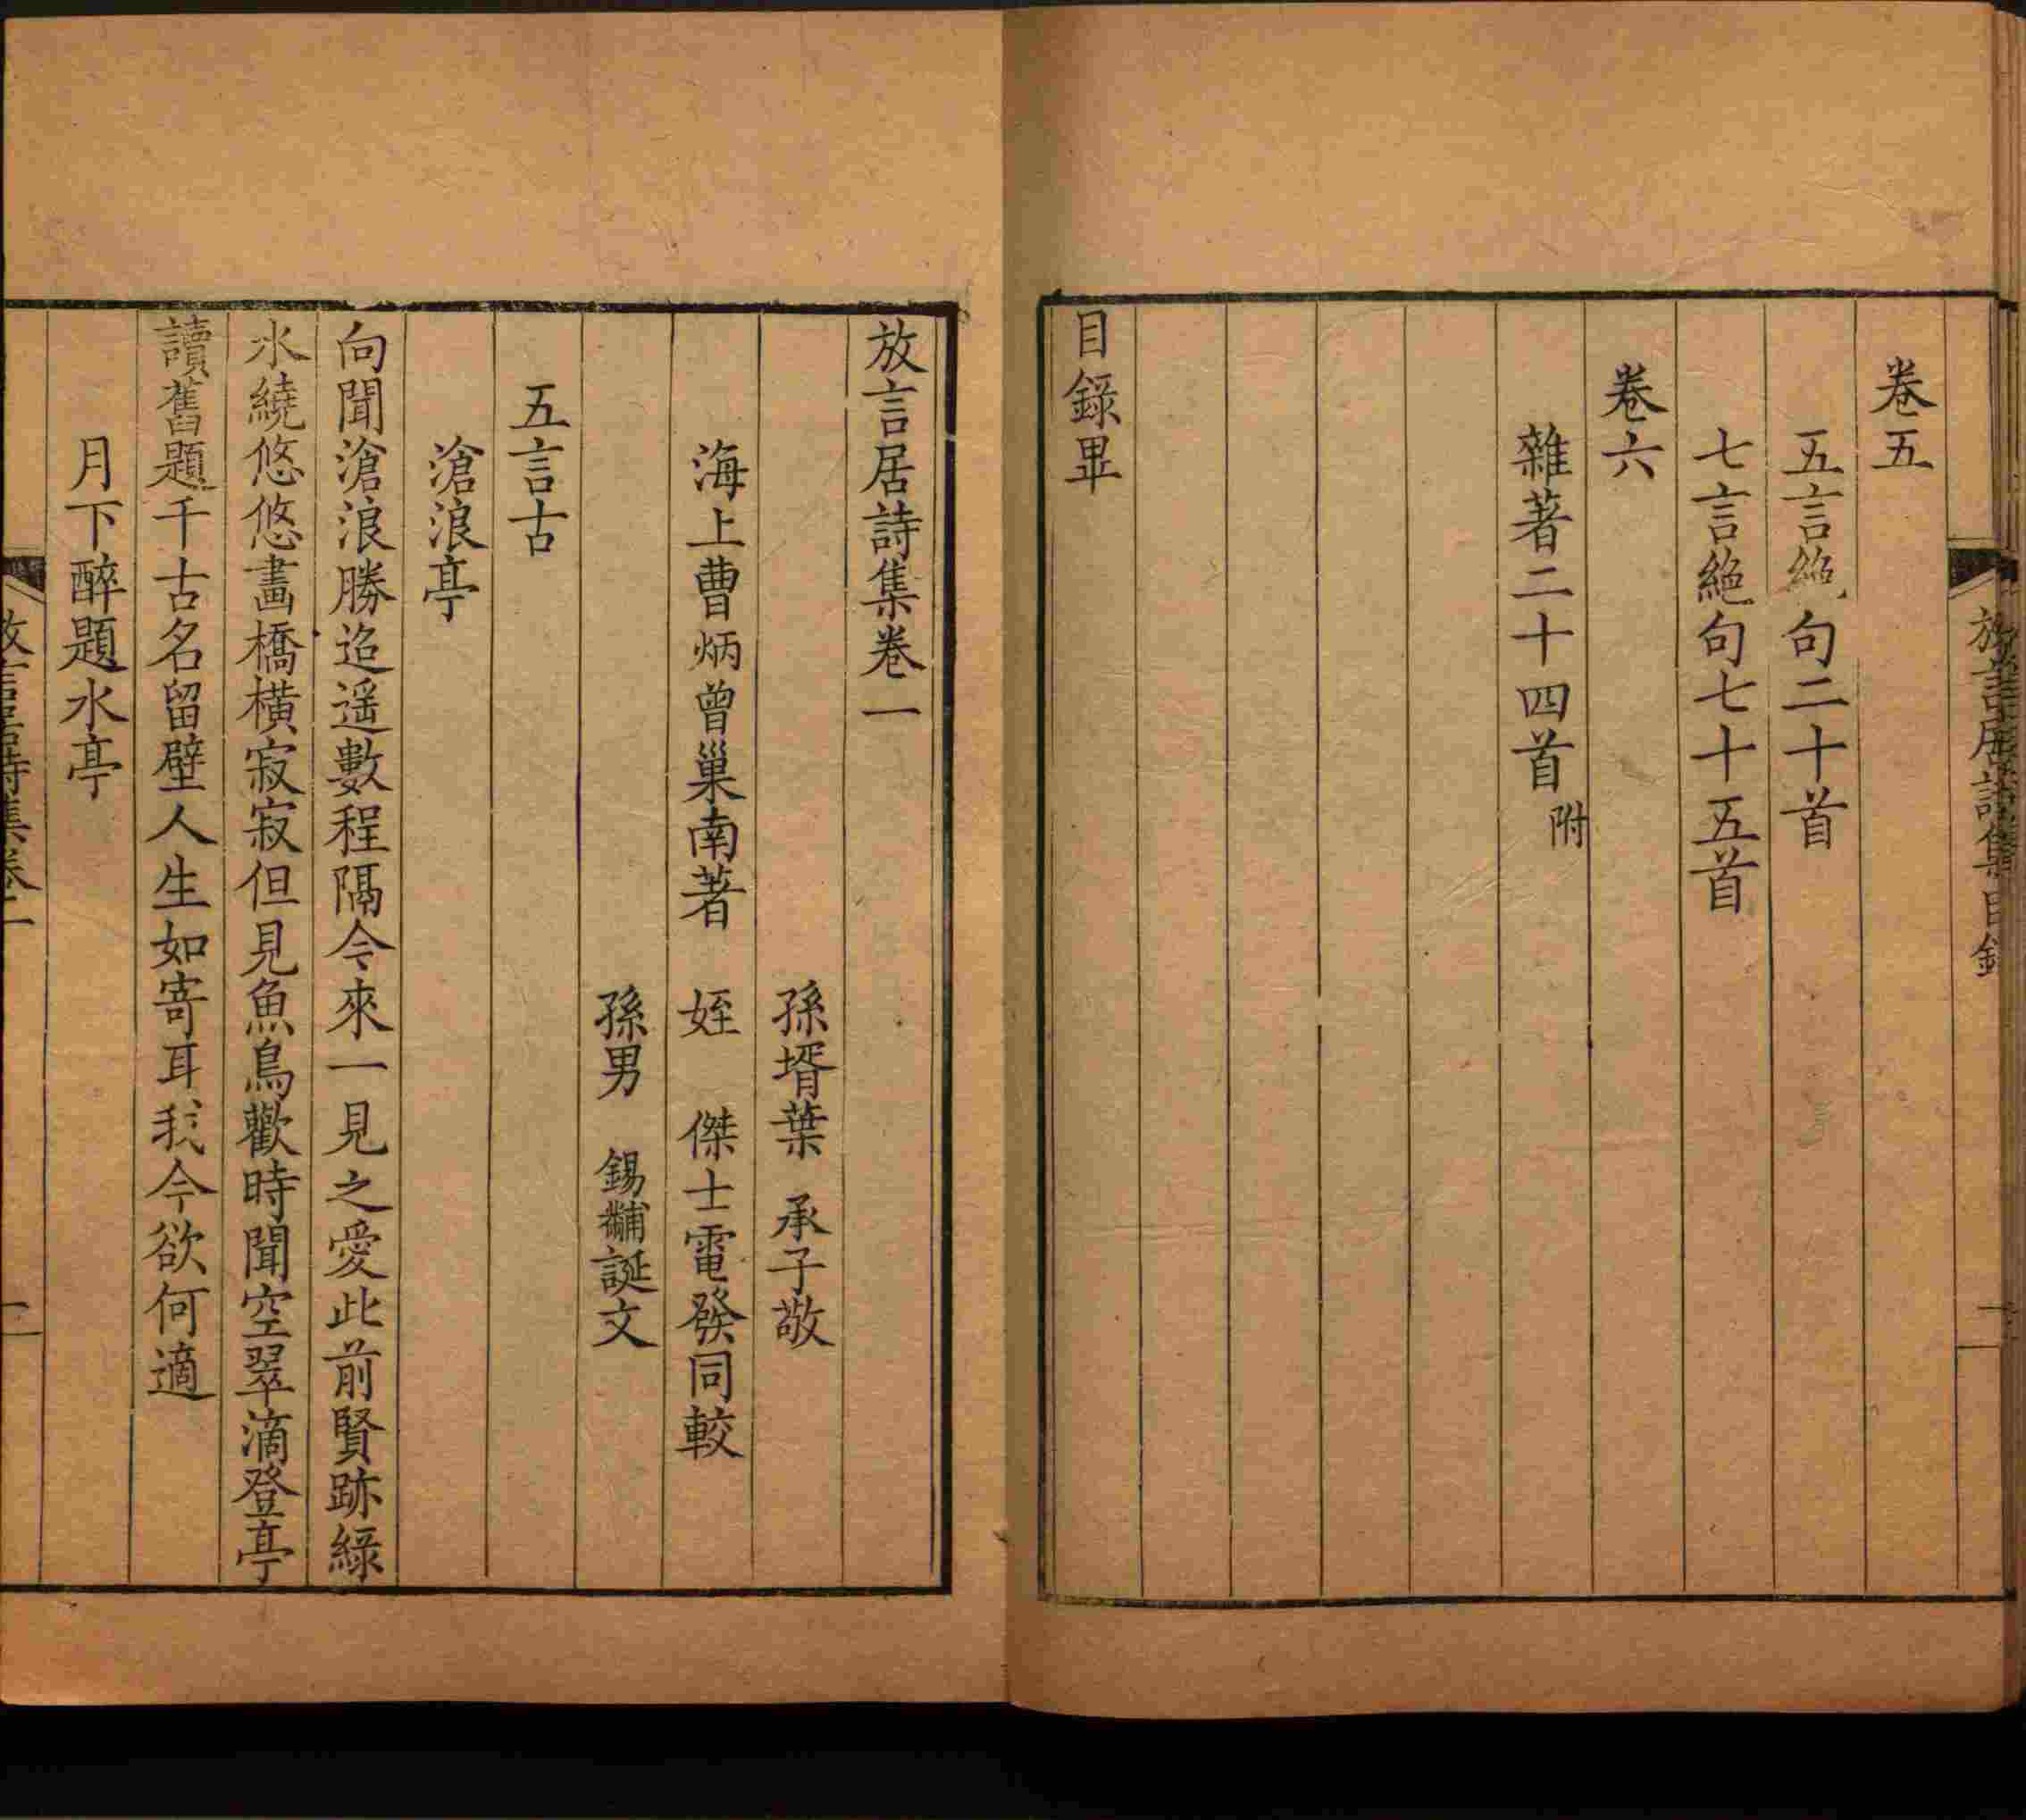 放言居詩集目錄
卷五
五言絕句二十首
七言絕句七十五首
卷六
雜著二十四首附
目錄畢
放言居詩集卷一
孫壻葉 承子敬
海上曹炳曾巢南著 姪 傑士電發同較
孫男 錫黼誕文
五言古
滄浪亭
向聞滄浪勝迢遥數程隔今來一見之愛此前賢跡綠
水繞悠悠畫橋橫寂寂但見魚鳥歡時聞空翠滴登亭
讀舊題千古名留壁人生如寄耳我今欲何適
月下醉題水亭
放言居詩集卷一
一